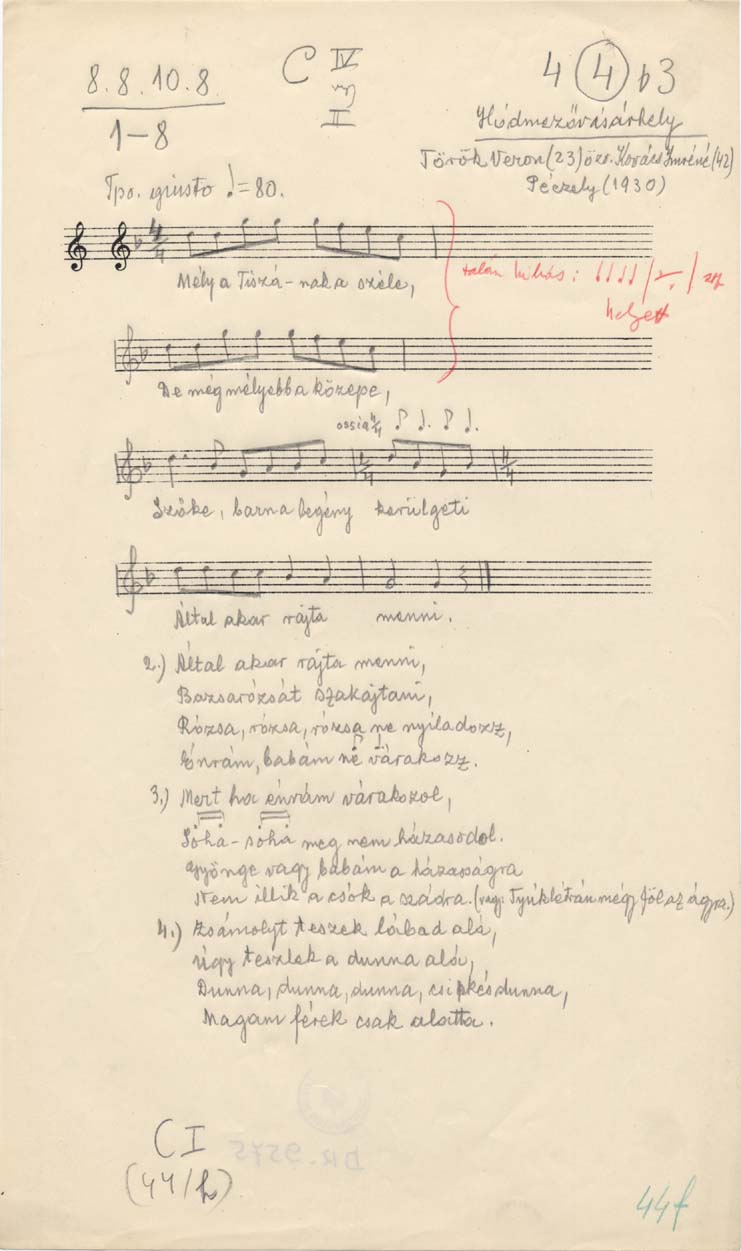 8.8.10.8.
1-8
C IV
vagy
II
4 4 b3
Hódmezővásárhely
Török Veron (23) özv. Kovács Imréné (42)
Péczely (1930)
Tpo. giusto ♩=80.
4/4
talán hibás: ♩♩♩♩
helyett
Mély a Tiszá-nak a széle,
De még mélyebb a közepe,
ossia 4/4 ♪ ♩. ♪ ♩.
Szőke, barna legény kerülgeti
Által akar rajta menni.
2.) Által akar rajta menni,
Bazsarózsát szakajtani,
Rózsa, rózsa, rózsa ne nyíladozz,
Énrám, babám ne várakozz.
3.) Mert ha énrám várakozol,
Sohá-sohá meg nem házasodol.
Gyönge vagy babám a házasságra
Nem illik a csók a szádra. (vagy: Tyúklétrán mégy föl az ágyra.)
4.) Zsámolyt teszek lábad alá,
Úgy teszlek a dunna alá,
Dunna, dunna, dunna, csipkés dunna,
Magam férek csak alatta.
CI
(44/h)
DR. 9575
44f